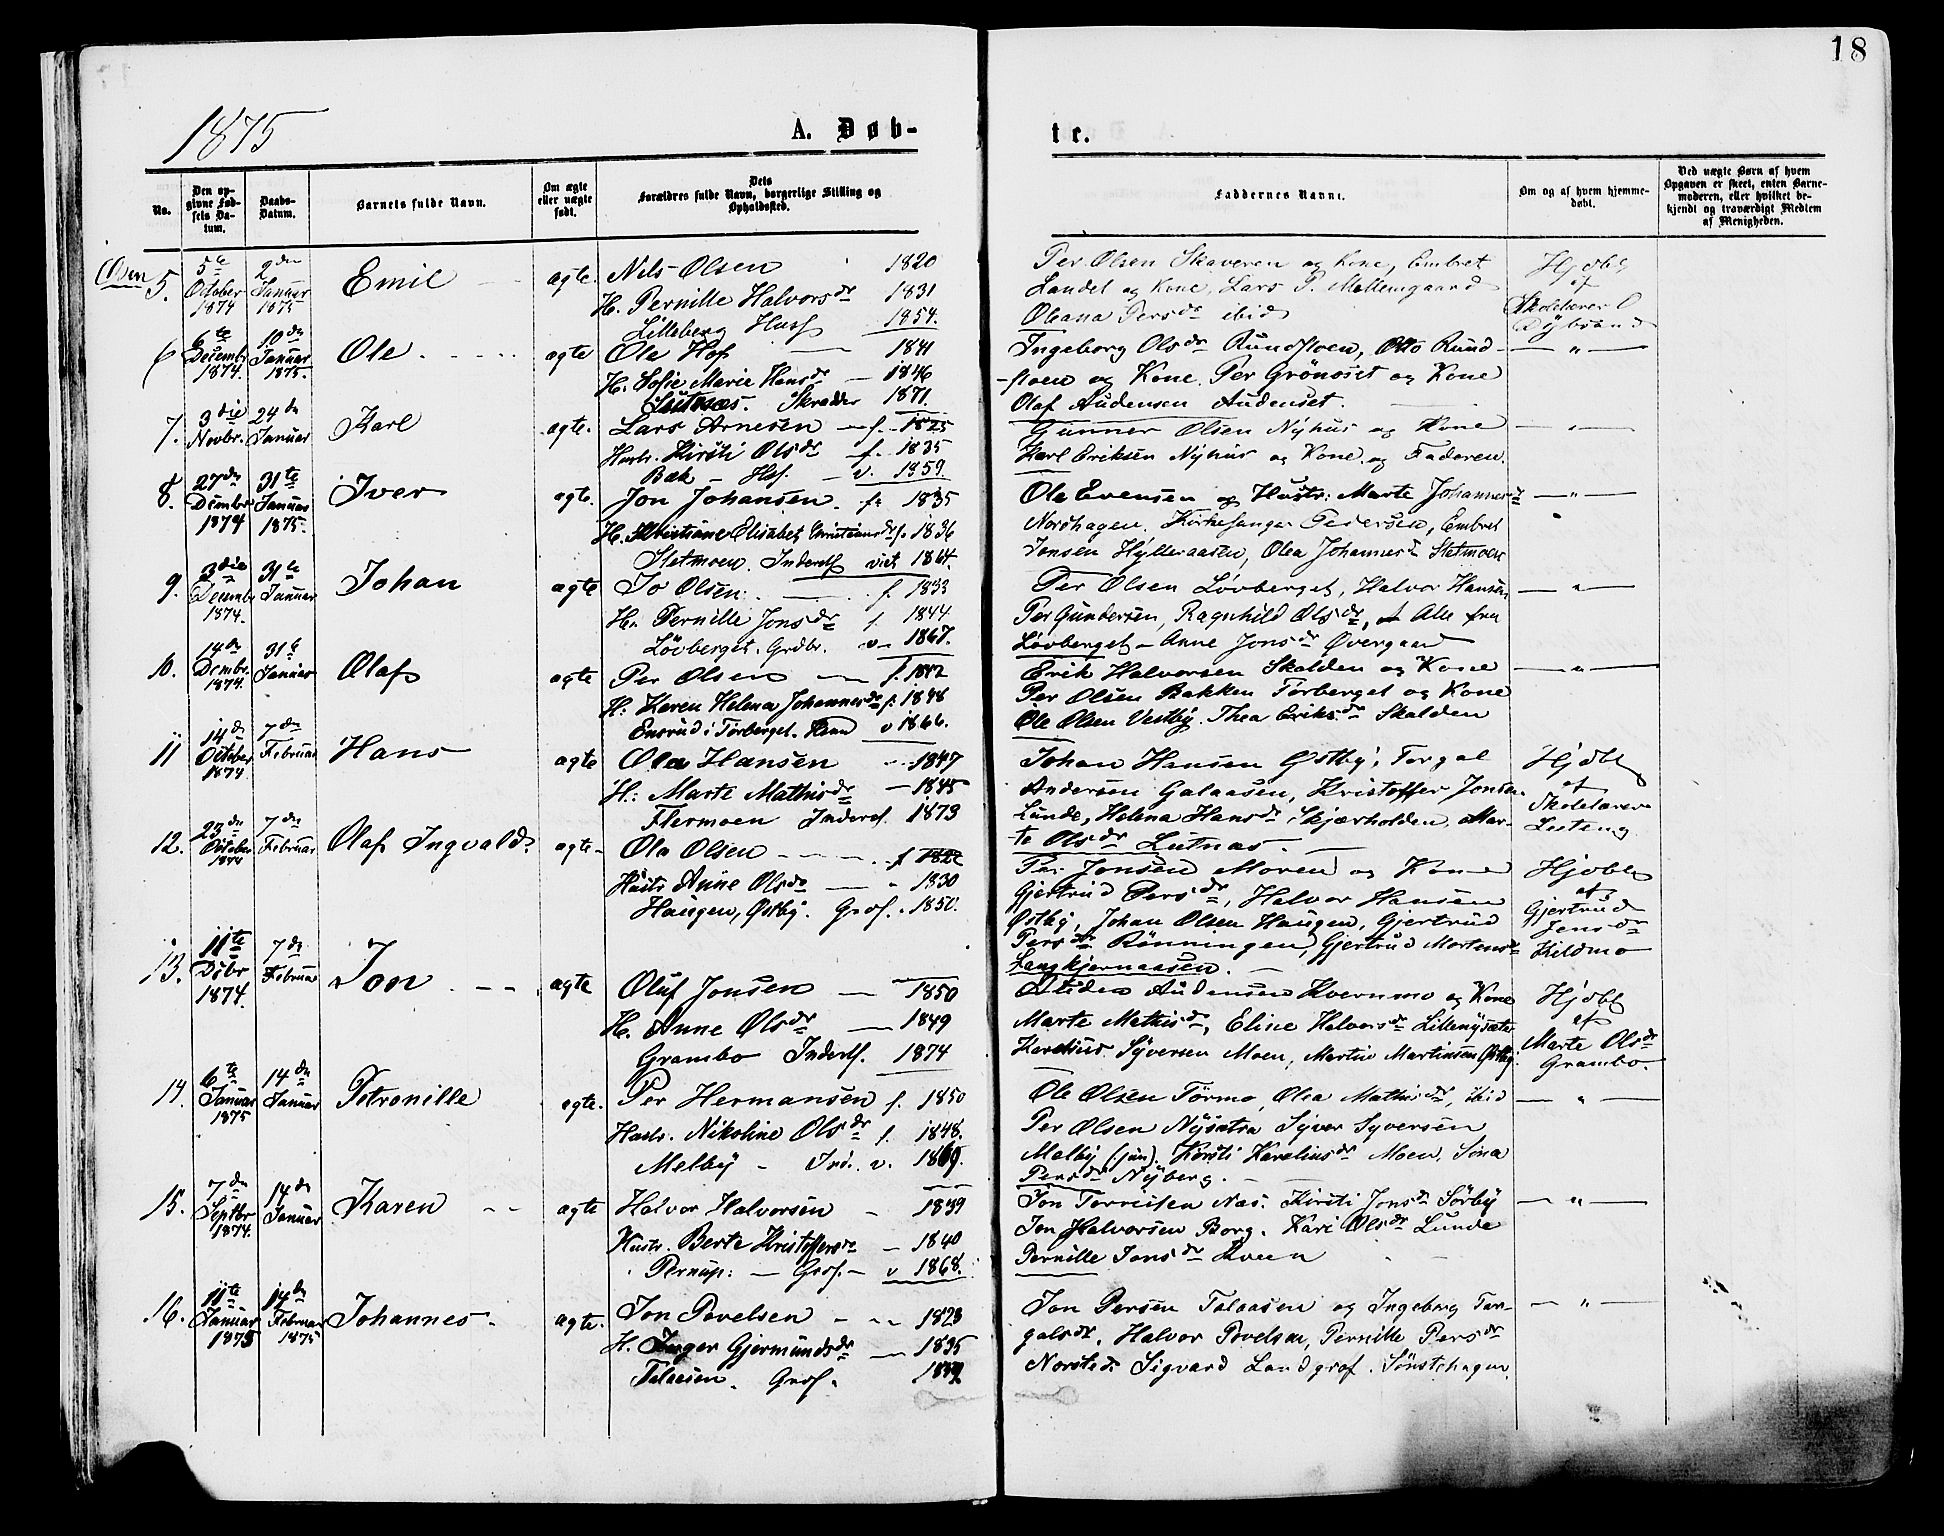 18
1875
A. Døb-
te.
No.
Den op-
givne Fød-
sels Da-
tum.
Daabs-
Datum.
Barnets fulde Navn.
Om ægte
eller uægte
født.
Dets
Forældres fulde Navn, borgerlige Stilling og
Opholdssted.
Faddernes Navne.
Om og af hvem hjemme-
døbt.
Ved uægte Børn af hvem
Opgaven er skeet, enten Barne-
moderen, eller hvilket be-
kjendt og troværdigt Medlem
af Menigheden.
Osen 5. 5te October 1874 2den Januar 1875 Emil ægte. Nils Olsen 1820
H. Pernille Halvorsdr 1831
Lilleberg Husf 1854.
Per Olsen Skaveren og Kone, Embret
Landet og Kone, Lars P. Mellemgaard
Oleana Persdr ibid
Hjdbt
af
Skolelærer O
Dybsand
6 6te Decembr 1874. 10de Januar 1875. Ole ægte Ole Hof 1841
H. Sofie Marie Hansdr 1846
Lutnæs. Skrædder 1871.
Ingeborg Olsdr Rundfloen, Otto Rund-
-floen og Kone. Per Grönoset og Kone
Olaf Audensen Audenset.
— " —
7. 3die Novbr. 24de Januar Karl ægte. Lars Arnesen f. 1825
Hustr. Kirsti Olsdr f. 1835
Bak – Hsf. – v. 1859.
Gunner Olsen Nyhus og Kone
Karl Eriksen Nyhus og Kone og Faderen.
— " —
8. 27de Dcembr 1874 31te Januar 1875. Iver ægte. Jon Johansen. f. 1835
H. Kristiane Elisabet Christiansdr f. 1836
Sletmoen. Inderst viet 1864.
Ole Evensen og Hustr: Marte Johannesdr
Nordhagen. Kirkesanger Pedersen, Embret
Jonsen Hylleraasen, Olea Johannesdr Sletmoen
— " —
9. 3die Decembr 1874. 31te Januar Johan ægte Jo Olsen f. 1833
H. Pernille Jonsdr f. 1844
Løvberget. Grdbr. v. 1867.
Per Olsen Løvberget, Halvor Hansen
Per Gundersen, Ragnhild Olsdr, Alle fra
Løvberget – Anne Jonsdr Øvergaard
— " —
10. 14de Dcembr. 1874. 31te Januar Olaf ægte Per Olsen f. 1842
H: Karen Helena Johannesdr f. 1848
Ensrud i Törberget. v 1866.
Erik Halvorsen Skalden og Kone
Per Olsen Bakken Törberget og Kone
Ole Olsen Vestby. Thea Eriksdr Skalden
— " —
11 14de October 1874 7de Februar Hans ægte Ola Hansen 1847
H: Marte Mathisdr 1845
Flermoen Inderst. 1873
Johan Hansen Østby, Torgal
Andersen Galaasen, Kristoffer Jonsen
Lunde, Helena Hansdr Skjærholden, Mar-
te Olsdr Lutnæs.
Hjdbt
af
Skolelærer
Luteng.
12. 23de October 1874 7de Februar Olaf Ingvald. ægte Ola Olsen f 1822
Hustr Anne Olsdr " 1830
Haugen, Østby. Grdf. 1850.
Per Jonsen Moren og Kone
Gjertrud Persdr, Halvor Hansen
Østby, Johan Olsen Haugen, Gjertrud
Persdr Rönningen, Gjertrud Mortensdr
Langkjernaasen.
Hjdbt
af
Gjertrud
Jensdr
Kildmo
13. 11te Dcbr 1874. 7de Februar Jon ægte Oluf Jonsen 1850
H. Anne Olsdr 1849
Grambo Inderst. 1874
Audensen Kvernmo og Kone
Marte Mathisdr, Eline Halvorsdr Lillenysæter
Karelius Syversen Moen, Martin Martinsen Østby.
Hjdbt
af
Marte Olsdr
Grambo.
14. 6te Januar 1875 14de Januar Petronille ægte. Per Hermansen f. 1850
Hustr. Nikoline Olsdr f. 1848.
Melby – Ind. v. 1869.
Ole Olsen Törmo, Olea Mathisdr, ibid
Per Olsen Nysæter Syver Syversen
Melby (jun). Kirsti Kareliusdr Moen, Sina
Persdr Nyberg.
— " —
15. 7de Septbr 1874. 14de Januar Karen ægte Halvor Halvorsen 1839
Hustr. Berte Kristoffersdr 1840
Pernup: – Grdf. – v 1868.
Jon Torreisen Næs. Kirsti Jonsdr Sörby
Jon Halvorsen Borg. Kari Olsdr Lunde
Pernille Jonsdr Kveen
— " —
16. 11te Januar 1875 14de Februar 1875 Johannes. ægte. Jon Povelsen 1823
H. Inger Gjermundsdr 1835
Talaasen. Grdf.
Jon Persen Talaasen og Ingeborg Tor-
galsdr, Halvor Povelsen, Pernille Persdr
Norsted Sigvard Landgraf. Sönstehagen.
— " —